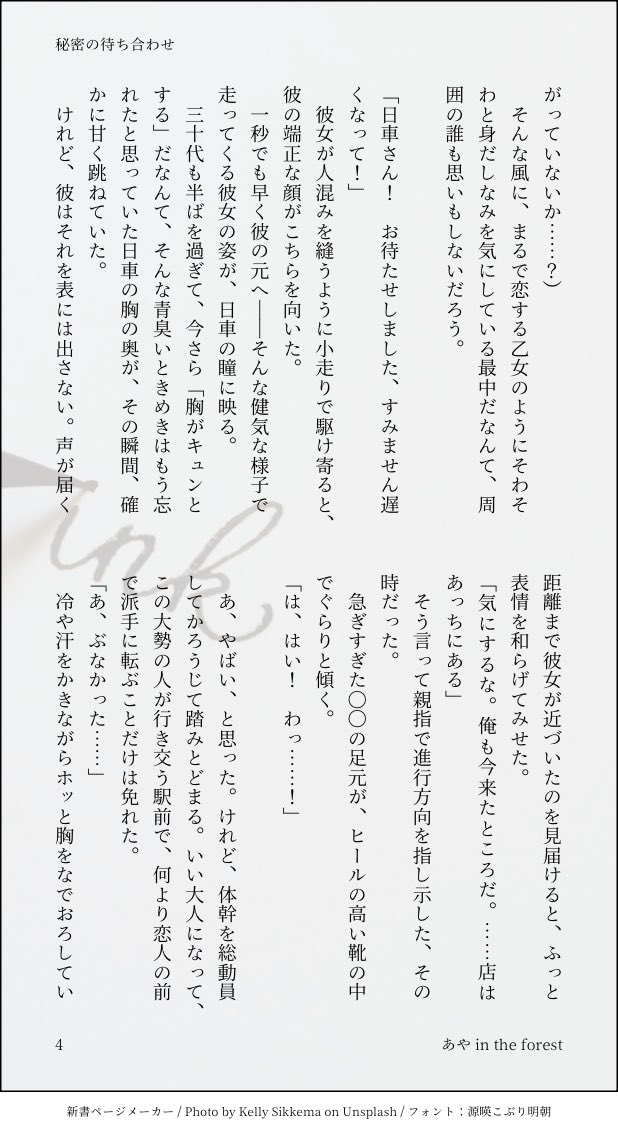 秘密の待ち合わせ
がっていないか……？）
　そんな風に、まるで恋する乙女のようにそわそ
わと身だしなみを気にしている最中だなんて、周
囲の誰も思いもしないだろう。
「日車さん！　お待たせしました、すみません遅
くなって！」
　彼女が人混みを縫うように小走りで駆け寄ると、
彼の端正な顔がこちらを向いた。
　一秒でも早く彼の元へ――そんな健気な様子で
走ってくる彼女の姿が、日車の瞳に映る。
　三十代も半ばを過ぎて、今さら「胸がキュンと
する」だなんて、そんな青臭いときめきはもう忘
れたと思っていた日車の胸の奥が、その瞬間、確
かに甘く跳ねていた。
　けれど、彼はそれを表には出さない。声が届く
距離まで彼女が近づいたのを見届けると、ふっと
表情を和らげてみせた。
「気にするな。俺も今来たところだ。……店は
あっちにある」
　そう言って親指で進行方向を指し示した、その
時だった。
　急ぎすぎた〇〇の足元が、ヒールの高い靴の中
でぐらりと傾く。
「は、はい！　わっ……！」
　あ、やばい、と思った。けれど、体幹を総動員
してかろうじて踏みとどまる。いい大人になって、
この大勢の人が行き交う駅前で、何より恋人の前
で派手に転ぶことだけは免れた。
「あ、ぶなかった……」
　冷や汗をかきながらホッと胸をなでおろしてい
ink
4
あや in the forest
新書ページメーカー / Photo by Kelly Sikkema on Unsplash / フォント：源暎こぶり明朝